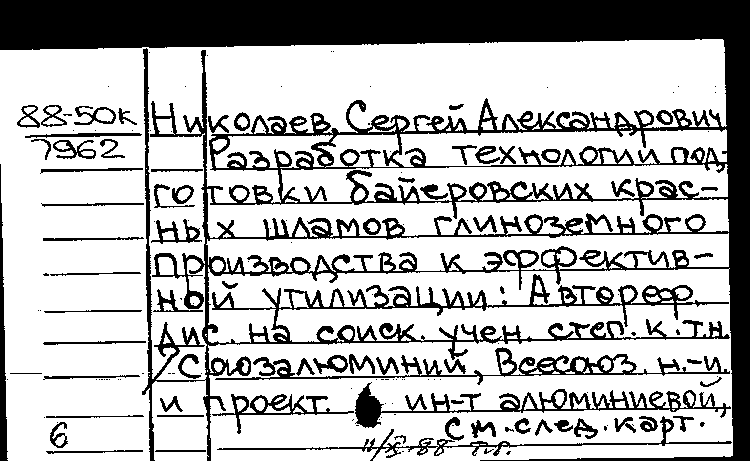 88-50к Николаев, Сергей Александрович
7962 Разработка технологии под-
готовки байеровских крас-
ных шламов глиноземного
производства к эффектив-
ной утилизации: Автореф.
дис. на соиск. учен. степ. к.т.н.
/Союзалюминий, Всесоюз. н.-и.
и проект. ин-т алюминиевой,
6 См. след. карт.